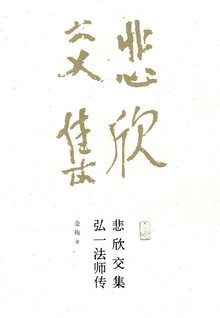 悲欣
交集
悲欣交集
弘一法师传
金梅 著